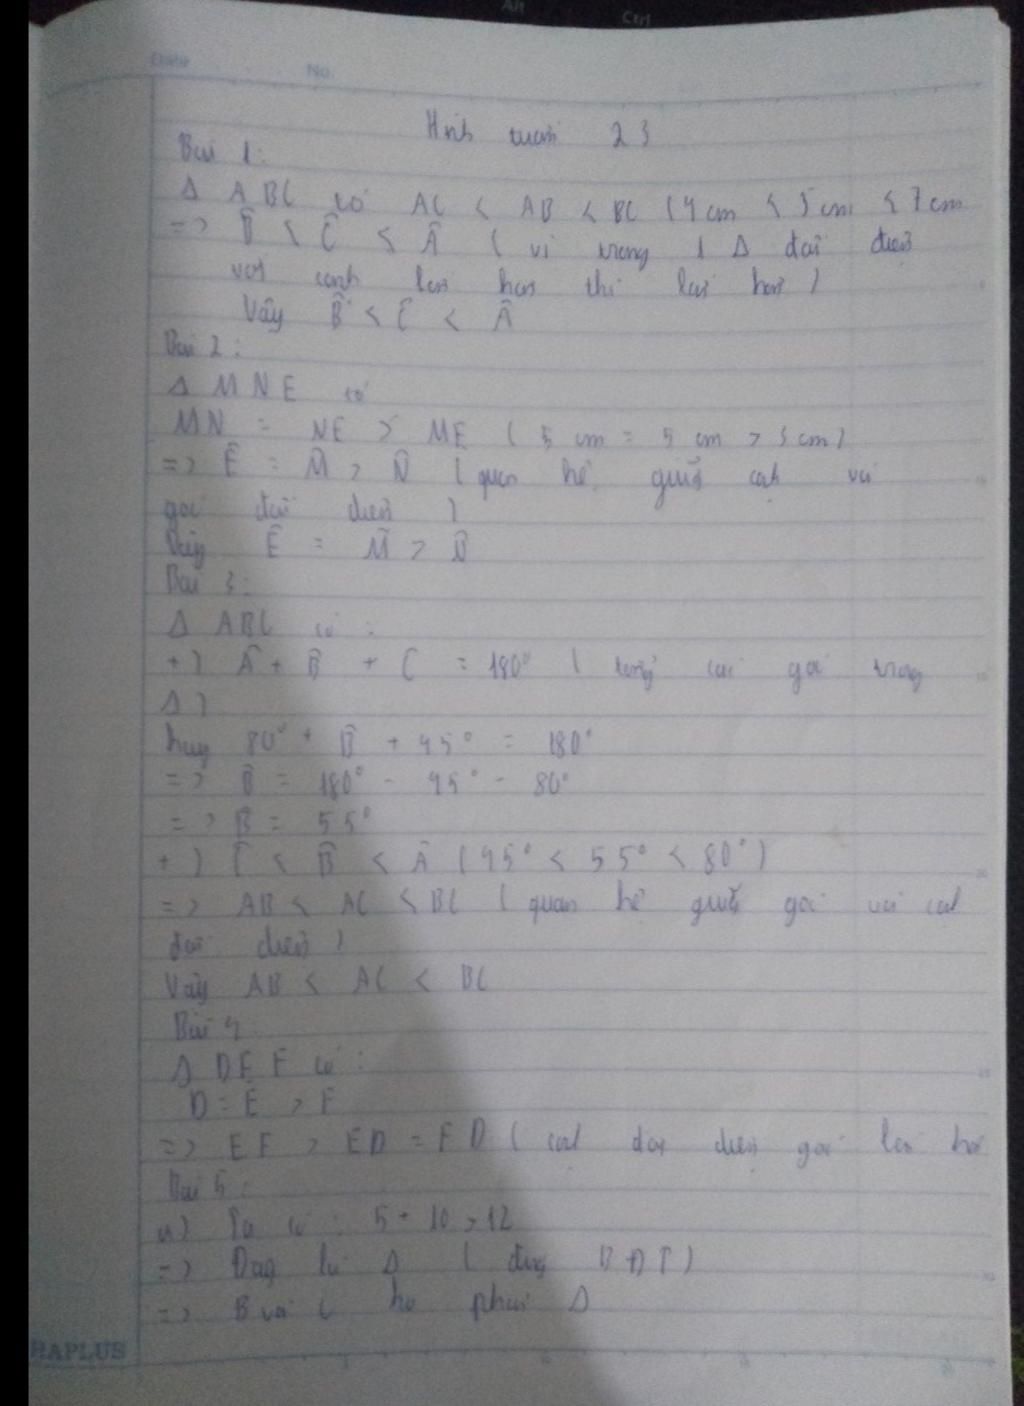 Alt Ctrl
Date No.
Hình tuần 23
Bài 1:
Δ ABC có AC < AB < BC (4 cm < 5 cm < 7 cm
=> B̂ < Ĉ < Â ( vì trong 1 Δ đối diện
với cạnh lớn hơn thì lớn hơn )
Vậy B̂ < Ĉ < Â
Bài 2:
Δ MNE có
MN = NE > ME ( 5 cm = 5 cm > 3 cm)
=> Ê = M̂ > N̂ ( quan hệ giữa cạnh và
góc đối diện )
Vậy Ê = M̂ > N̂
Bài 3:
Δ ABC có :
+) Â + B̂ + Ĉ = 180° ( tổng các góc trong
Δ )
hay 80° + B̂ + 45° = 180°
=> B̂ = 180° - 45° - 80°
=> B̂ = 55°
+) Ĉ < B̂ < Â (45° < 55° < 80°)
=> AB < AC < BC ( quan hệ giữa góc và cạnh
đối diện )
Vậy AB < AC < BC
Bài 4
Δ DEF có :
D = E > F
=> EF > ED = FD ( cạnh đối diện góc lớn hơ
Bài 5:
a) Ta có : 5 + 10 > 12
=> Đây là Δ ( đúng BĐT)
=> B và C ko phải Δ
HAPLUS